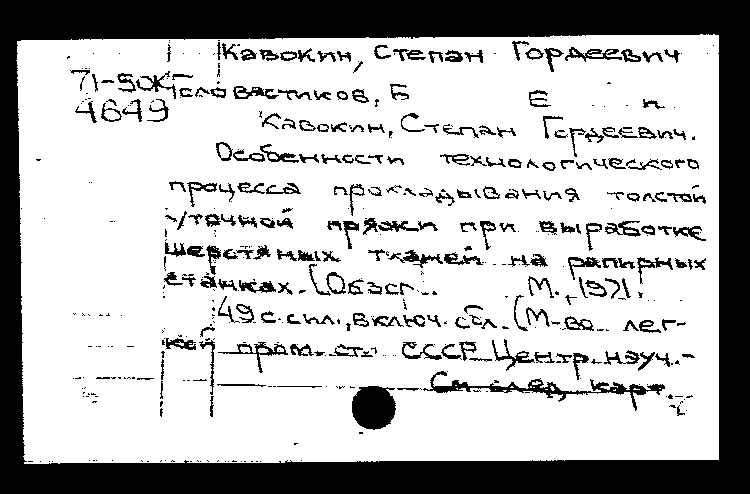 Кавокин, Степан Гордеевич
71-50К
Словастиков, Б Е п
4649
Кавокин, Степан Гордеевич.
Особенности технологического
процесса прокладывания толстой
уточной пряжи при выработке
шерстяных тканей на рапирных
станках. [Обзор. М., 1971.
49 с. с ил., включ. обл. (М-во лег-
кой пром-сти СССР. Центр. науч.-
См след карт.